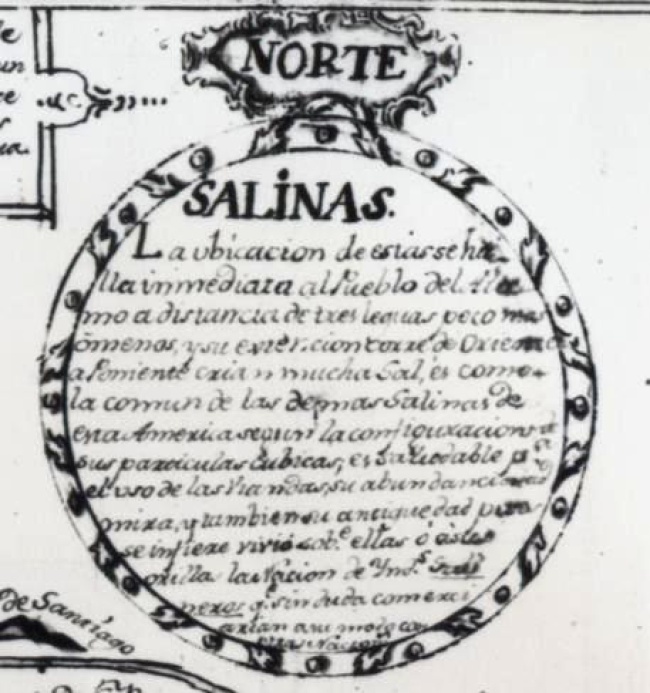 e
un
e
s
ua.
NORTE
SALINAS.
La vbicacion de estas se ha
lla inmediata al Pueblo del
mo a distancia de tres leguas poco mas
ò menos, y su extẽcion corre de Oriente
a Poniente crian mucha Sal, es como
la comun de las demas Salinas de
esta America segun la configuracion d
sus particulas Cubicas; es saludable pa
el uso de las viandas, su abundancia
mixa, y tambien su antiguedad pues
se infiere vivió sobe. ellas ò
orilla la Nacion de Ynds. Sali
neros q. sin duda comerci
arian a su modo con
Nacion
de Santiago